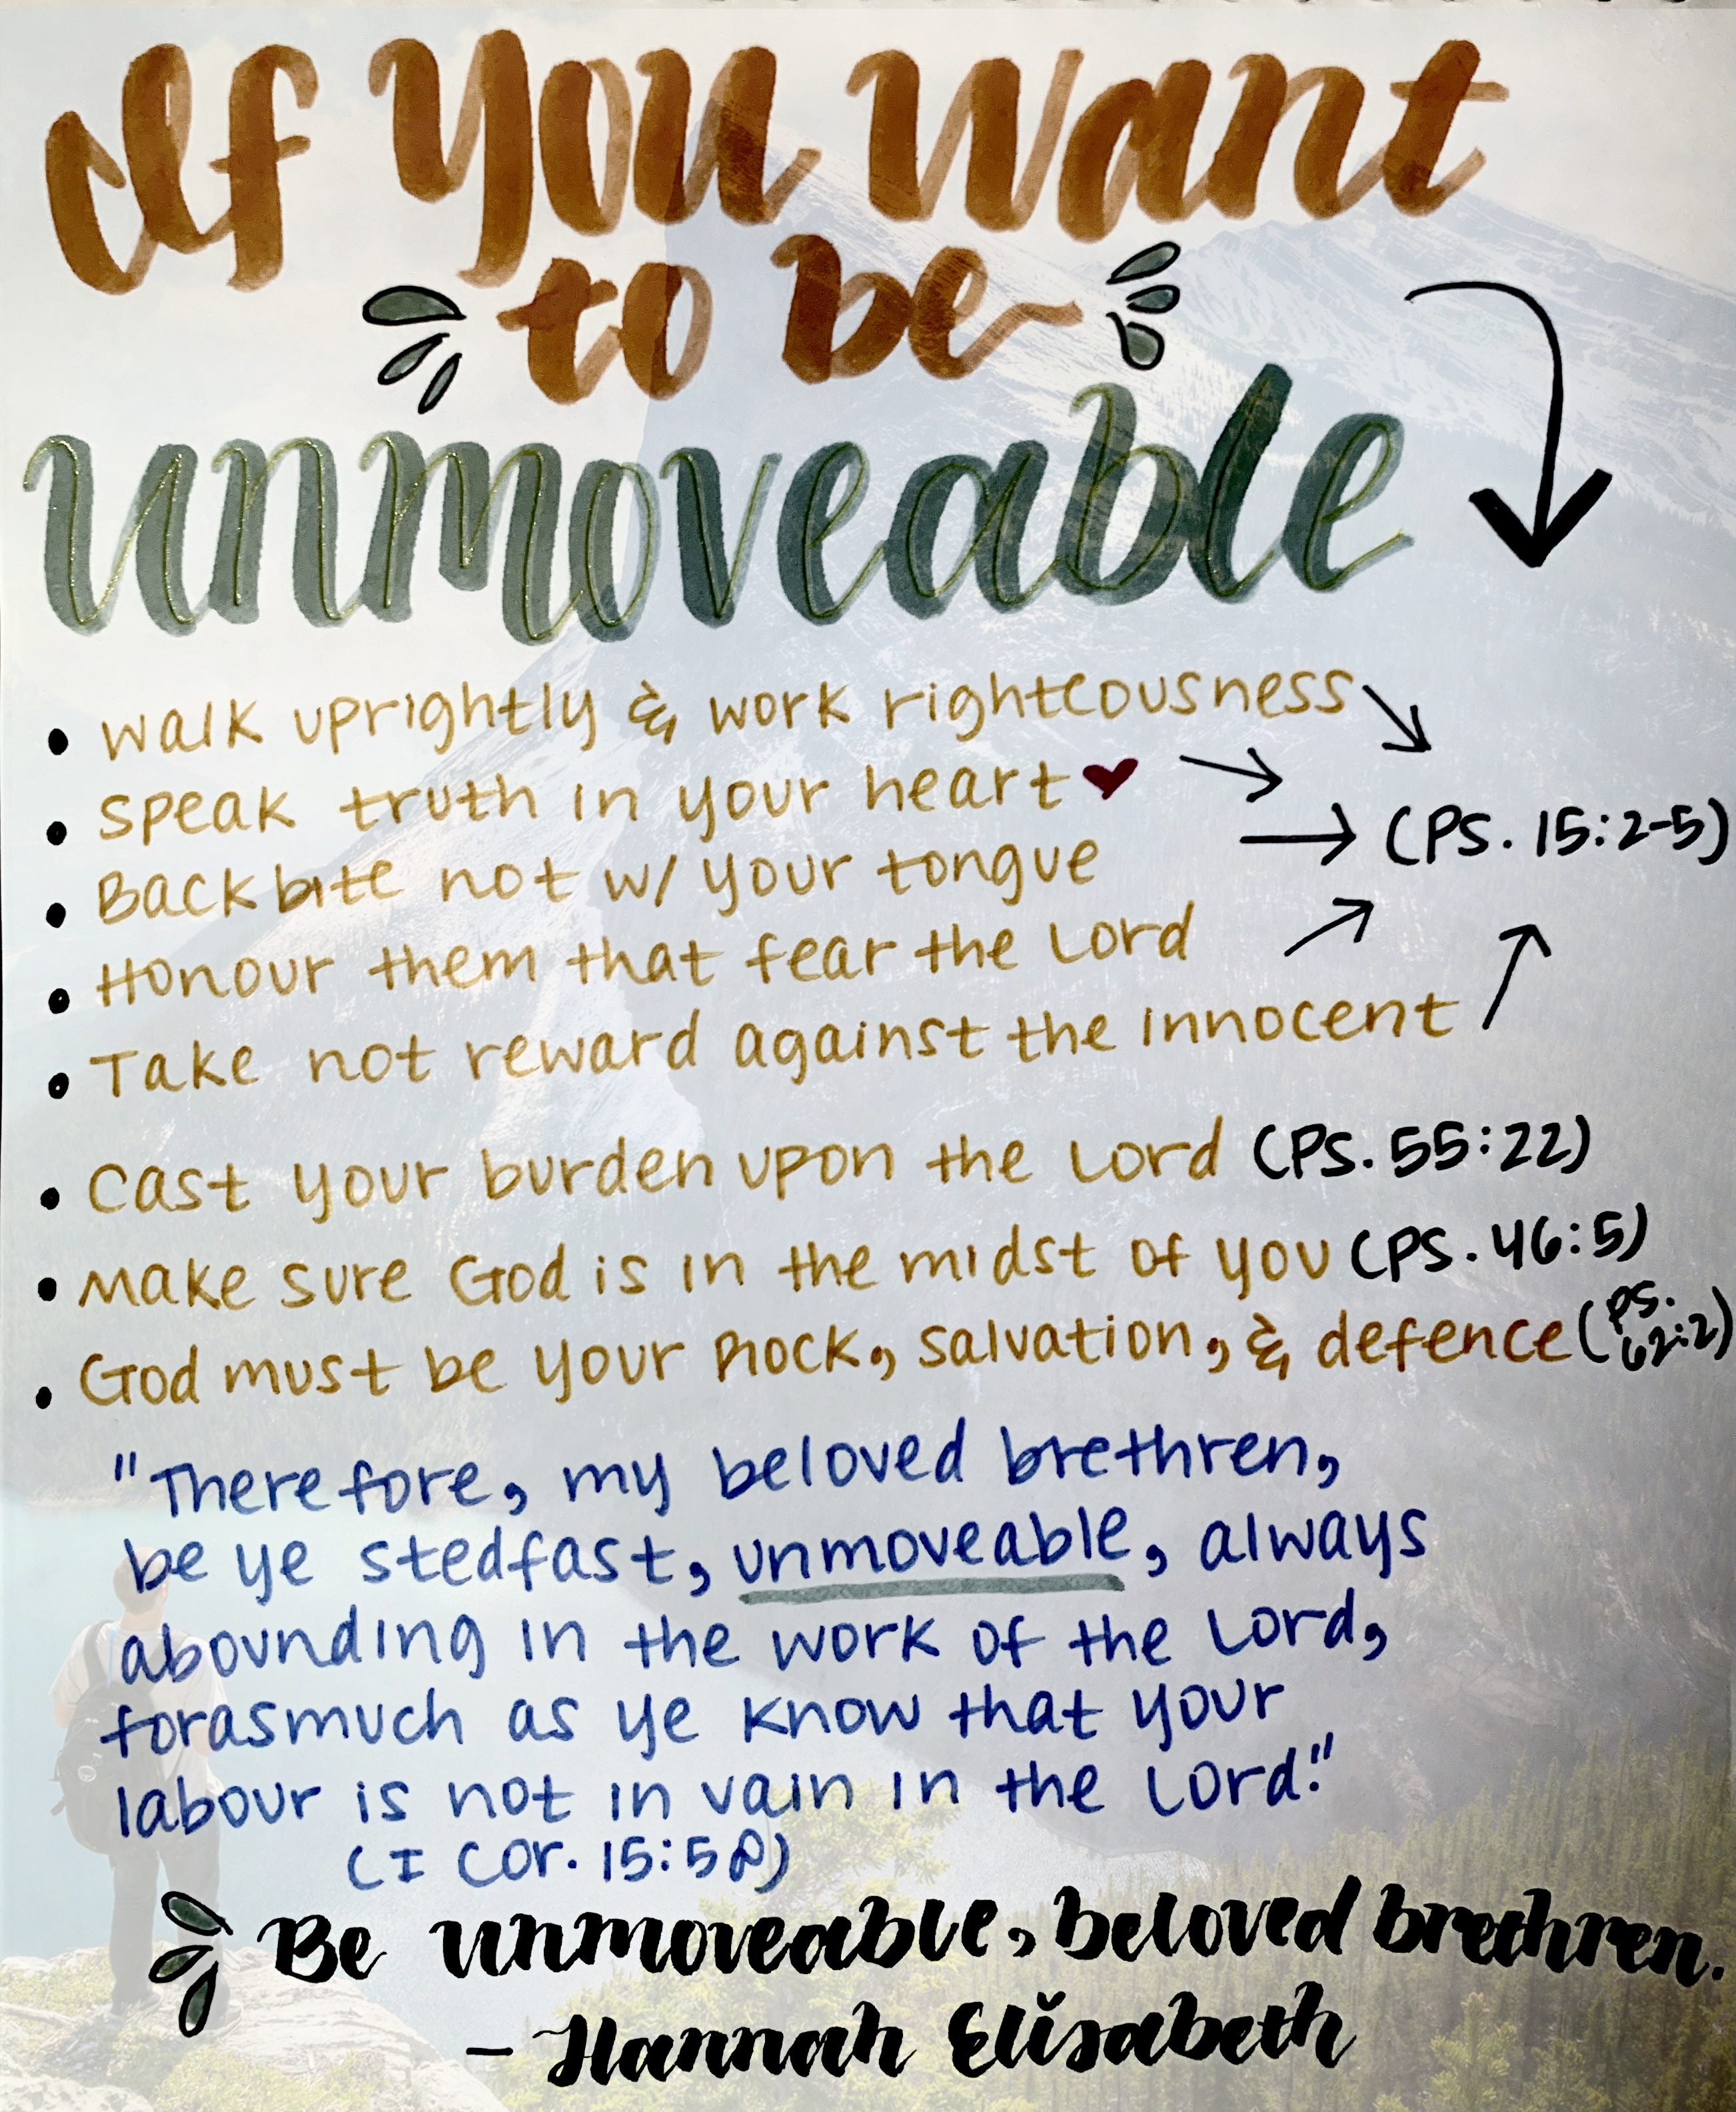 If you want
to be
unmoveable
• walk uprightly & work righteousness
• speak truth in your heart
• Backbite not w/ your tongue
(Ps. 15:2-5)
• Honour them that fear the Lord
• Take not reward against the innocent
• Cast your burden upon the Lord (Ps. 55:22)
• Make sure God is in the midst of you (Ps. 46:5)
• God must be your Rock, salvation, & defence (Ps. 62:2)
"Therefore, my beloved brethren,
be ye stedfast, unmoveable, always
abounding in the work of the Lord,
forasmuch as ye know that your
labour is not in vain in the Lord."
(I Cor. 15:58)
Be unmoveable, beloved brethren.
- Hannah Elisabeth